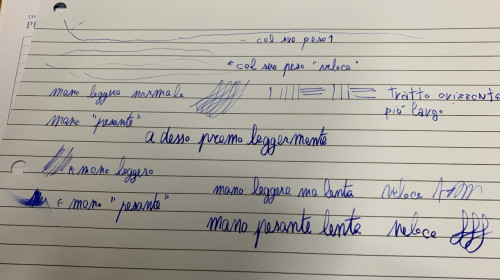 TH
P
col suo peso ↑
← col suo peso "veloce"
mano leggera normale
tratto orizzontale
più largo
mano "pesante"
adesso premo leggermente
← mano leggera
mano leggera ma lenta veloce
← mano "pesante"
mano pesante lenta veloce